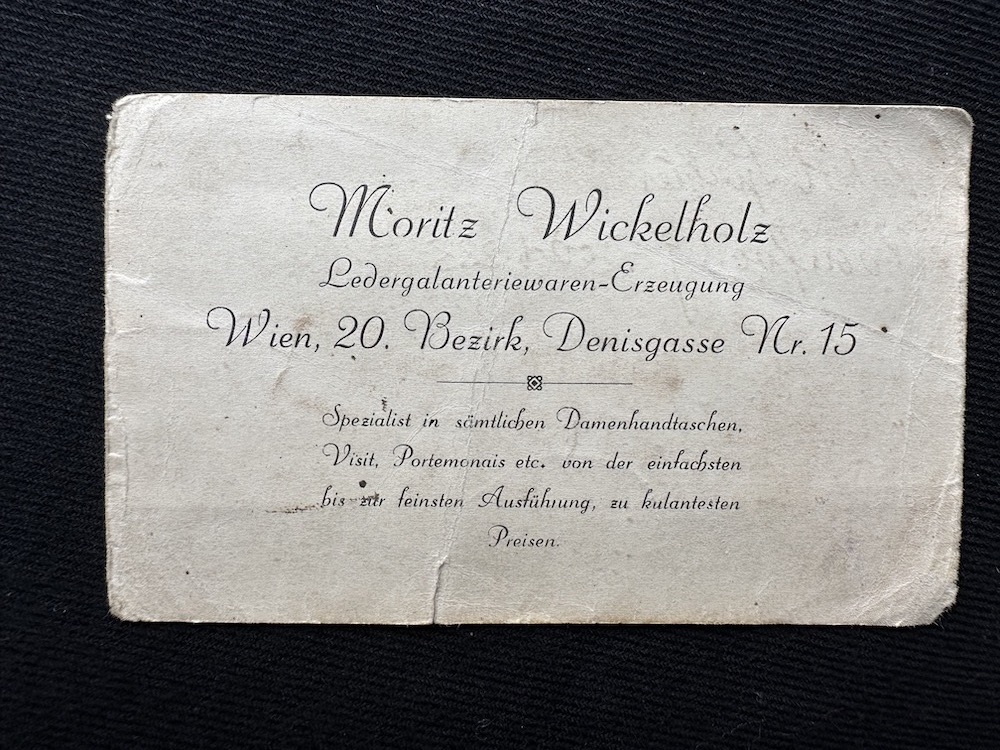 Moritz Wickelholz
Ledergalanteriewaren-Erzeugung
Wien, 20. Bezirk, Denisgasse Nr. 15
Spezialist in sämtlichen Damenhandtaschen,
Visit, Portemonais etc. von der einfachsten
bis zur feinsten Ausführung, zu kulantesten
Preisen.